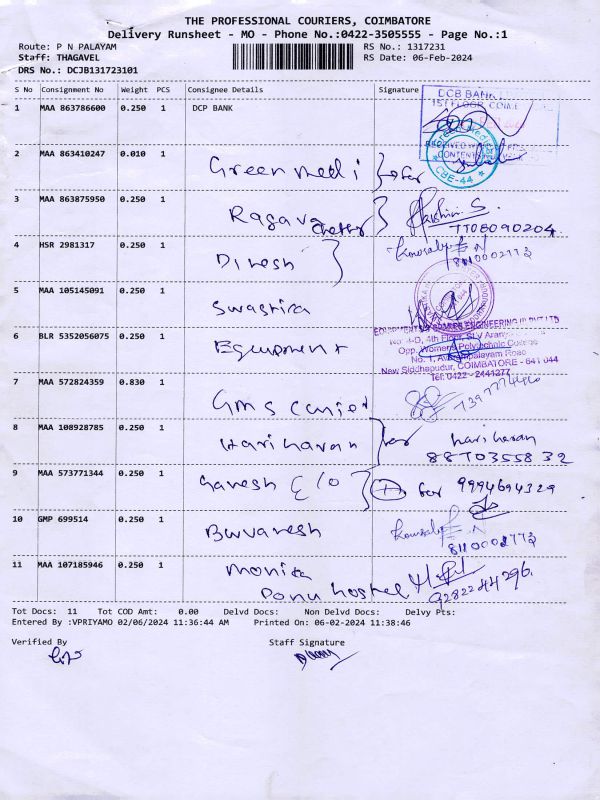 THE PROFESSIONAL COURIERS, COIMBATORE
Delivery Runsheet - MO - Phone No.:0422-3505555 - Page No.:1
Route: P N PALAYAM
RS No.: 1317231
Staff: THAGAVEL
RS Date: 06-Feb-2024
DRS No.: DCJB131723101
S No Consignment No Weight PCS Consignee Details Signature
1 MAA 863786600 0.250 1 DCP BANK
DCB BANK
1ST FLOOR, COIM
CONTENT
2 MAA 863410247 0.010 1 Green medi
CBE-44
3 MAA 863875950 0.250 1 Ragava
S.
4 HSR 2981317 0.250 1 Dinesh
8110002773
5 MAA 105145091 0.250 1 Swastika
6 BLR 5352056075 0.250 1 Equipment
No: 4-D, 4th Floor,
Opp. Women's Polytechnic College
New Siddhapudur, COIMBATORE - 641 044
Tel: 0422 - 2441277
7 MAA 572824359 0.830 1 GMS
8 MAA 108928785 0.250 1 Hariharan
hariharan
9 MAA 573771344 0.250 1 Ganesh c/o
for 9994694329
10 GMP 699514 0.250 1 Buvanesh
8110002773
11 MAA 107185946 0.250 1 Monika
hostel
9282244296
Tot Docs: 11 Tot COD Amt: 0.00 Delvd Docs: Non Delvd Docs: Delvy Pts:
Entered By :VPRIYAMO 02/06/2024 11:36:44 AM Printed On: 06-02-2024 11:38:46
Verified By Staff Signature